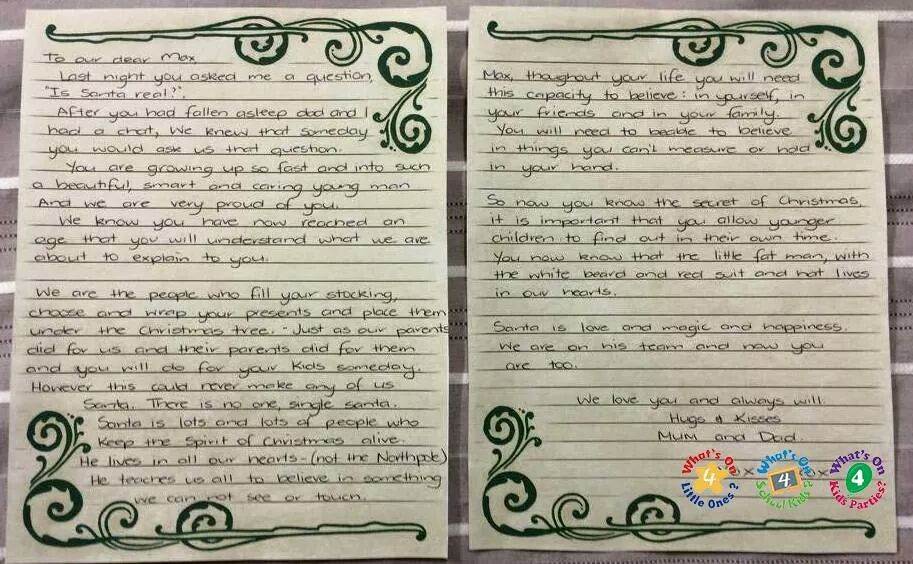 To our dear Max,
Last night you asked me a question,
"Is Santa real?".
After you had fallen asleep dad and I
had a chat, We knew that someday
you would ask us that question.
You are growing up so fast and into such
a beautiful, smart and caring young man
And we are very proud of you.
We know you have now reached an
age that you will understand what we are
about to explain to you.
We are the people who fill your stocking,
choose and wrap your presents and place them
under the Christmas tree. - Just as our parents
did for us and their parents did for them
and you will do for your Kids someday.
However this could never make any of us
Santa. There is no one, single santa.
Santa is lots and lots of people who
Keep the Spirit of Christmas alive.
He lives in all our hearts-(not the Northpole)
He teaches us all to believe in something
we can not see or touch.
Max, thoughout your life you will need
this capacity to believe: in yourself, in
your friends and in your family.
You will need to beable to believe
in things you can't measure or hold
in your hand.
So now you know the secret of Christmas,
it is important that you allow younger
children to find out in their own time.
You now know that the little fat man, with
the white beard and red suit and hat lives
in our hearts.
Santa is love and magic and happiness.
We are on his team and now you
are too.
We love you and always will.
Hugs & Kisses
Mum and Dad.
What's On 4 Little Ones?
What's On 4 School Kids?
What's On 4 Kids Parties?